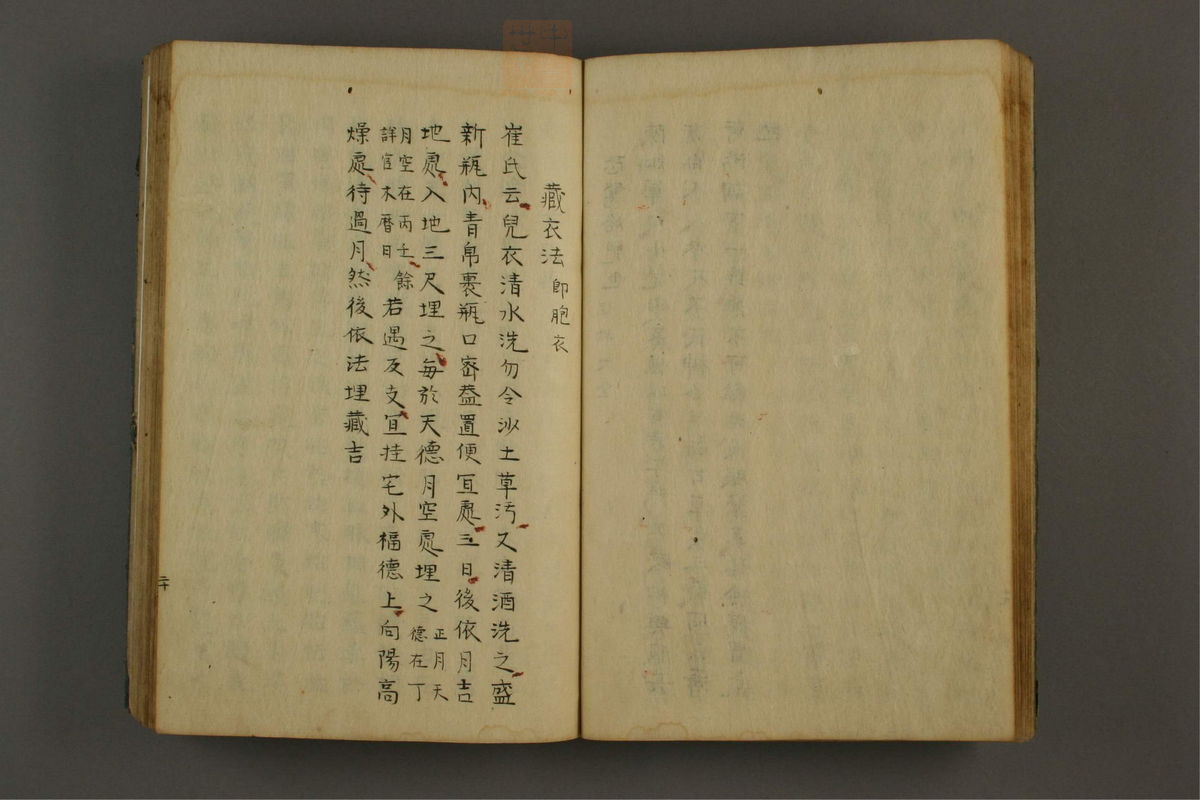 藏衣法 即胞衣
崔氏云兒衣清水洗勿令沙土草污又清酒洗之盛
新瓶內青帛裹瓶口密蓋置便冝處三日後依月吉
地處入地三尺埋之每於天德月空處埋之 正月天德在丁
月空在丙壬餘詳官木曆日 若遇反支冝挂宅外福德上向陽高
燥處待過月然後依法埋藏吉